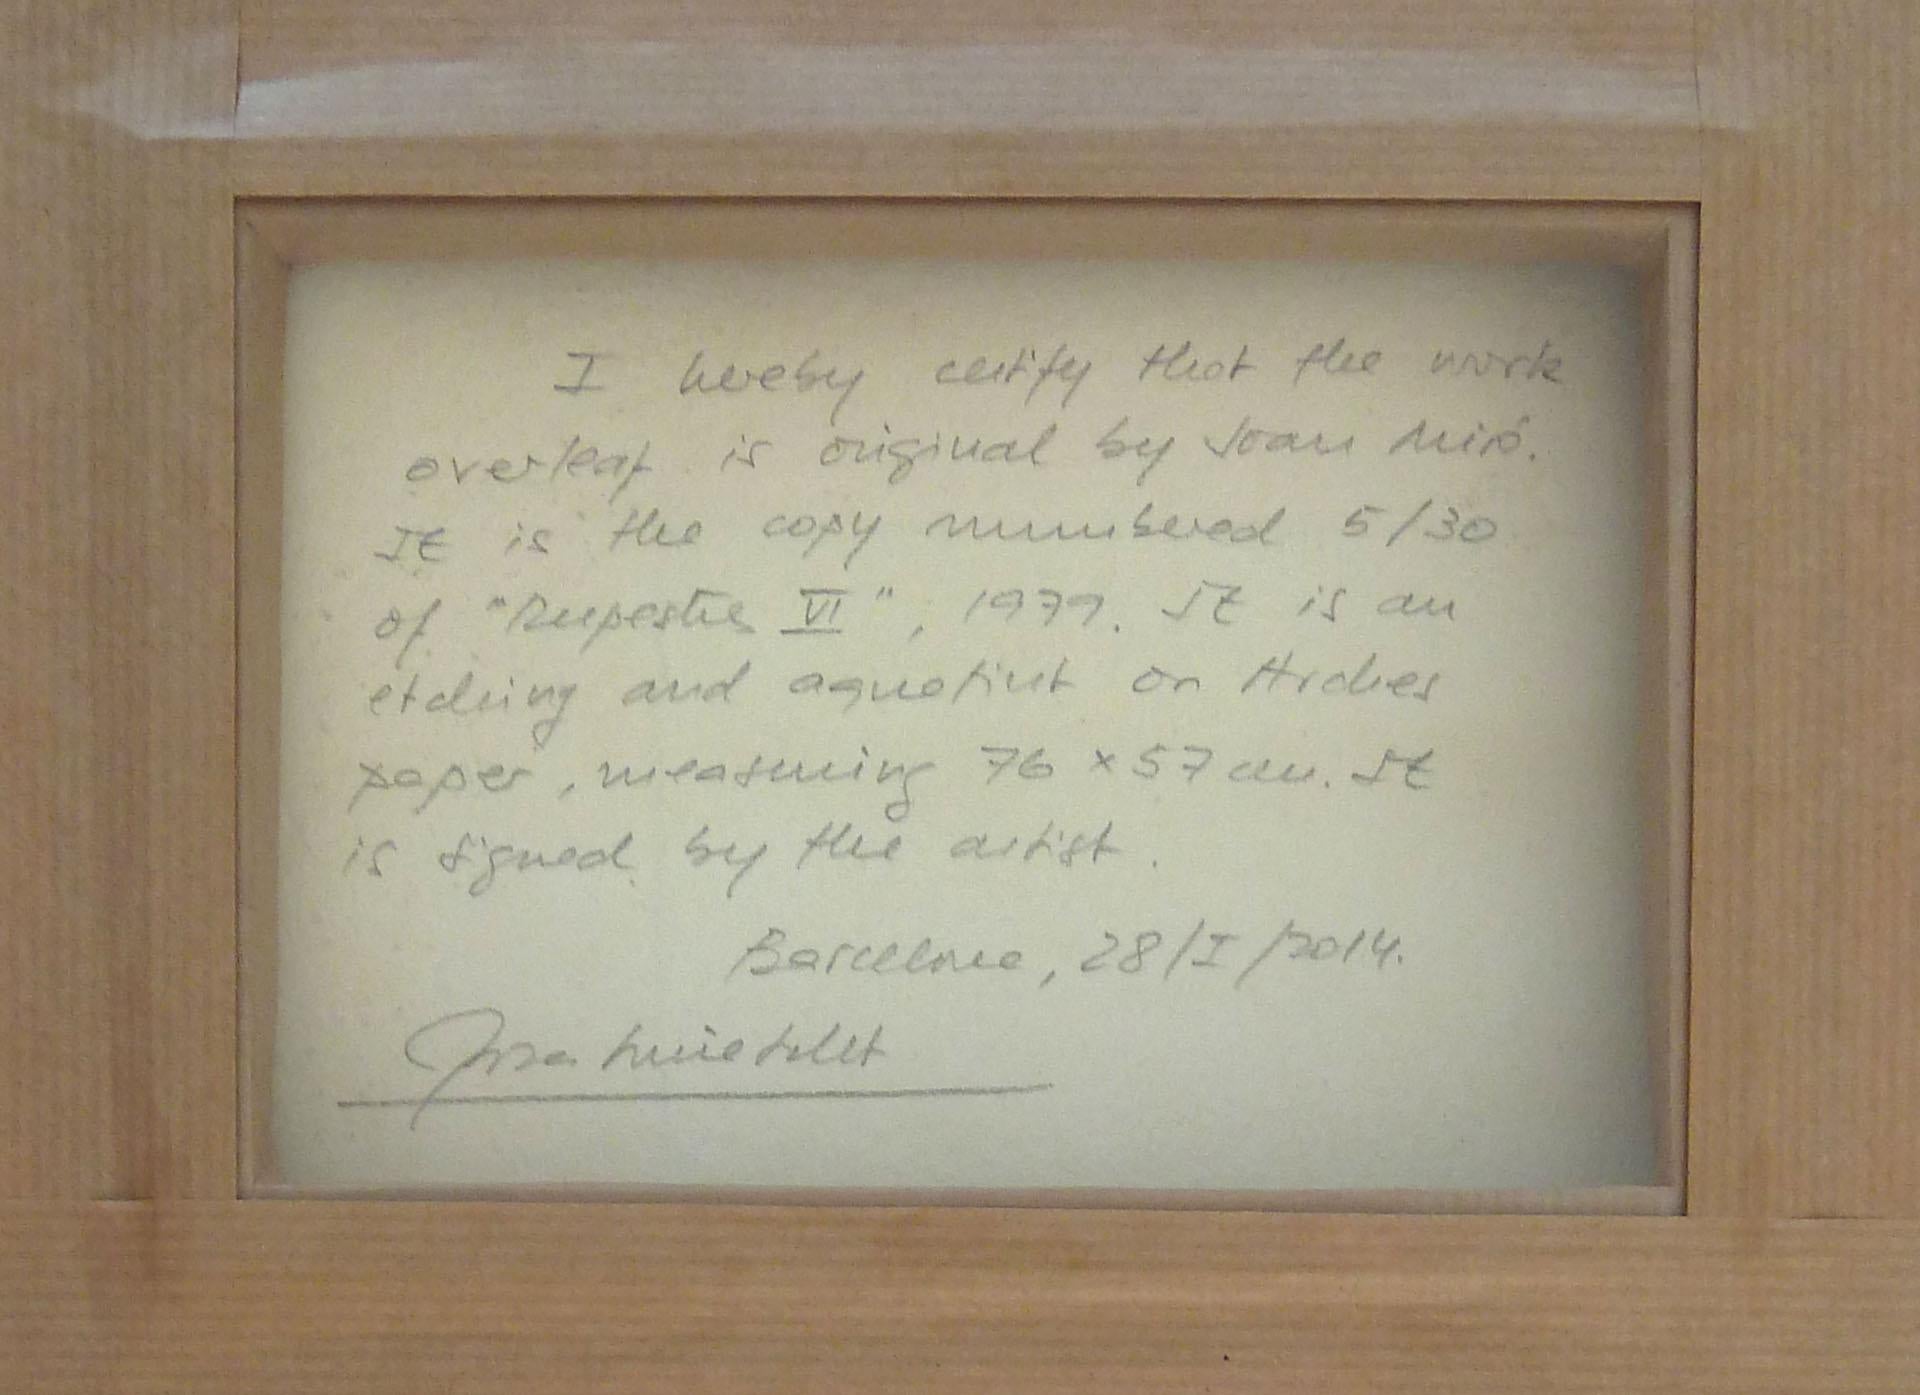 I hereby certify that the work
overleaf is original by Joan Miró.
It is the copy numbered 5/30
of "Rupestres VI", 1979. It is an
etching and aquatint on Arches
paper, measuring 76 x 57 cm. It
is signed by the artist.
Barcelona, 28/I/2014.